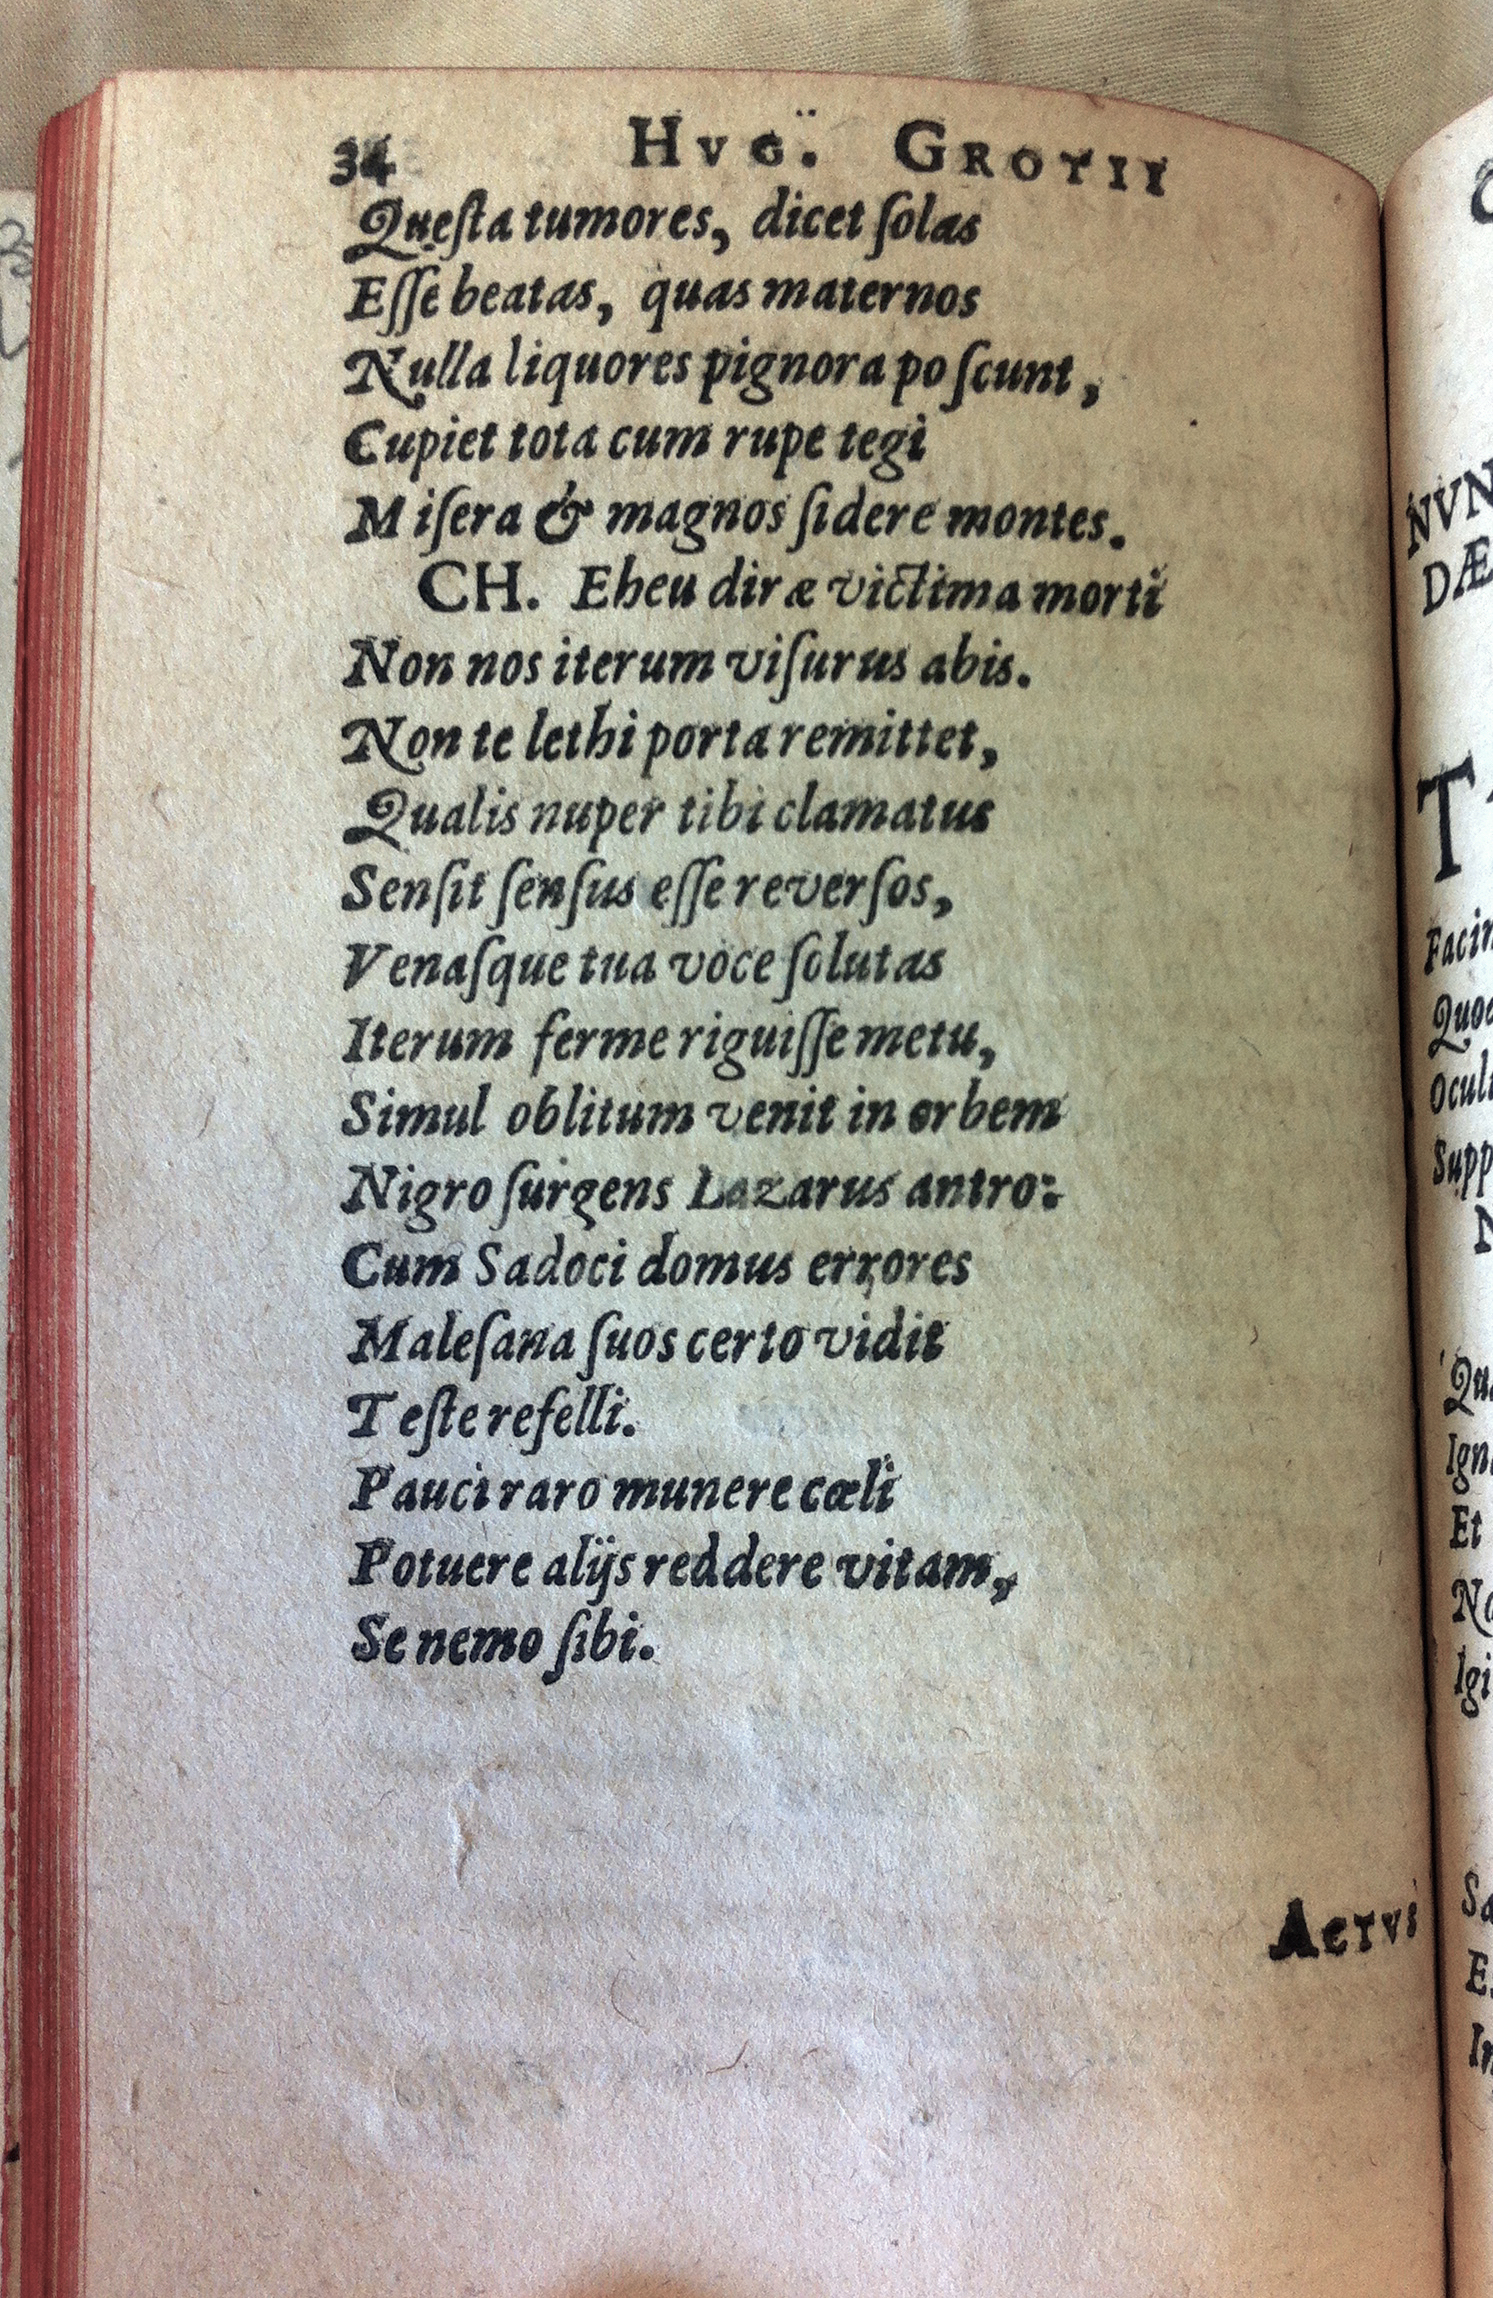 34 HVG. GROTII
Quęsta tumores, dicet ſolas
Eſſe beatas, quas maternos
Nulla liquores pignora poſcunt,
Cupiet tota cum rupe tegi
Miſera & magnos ſidere montes.
CH. Eheu diræ victima morti
Non nos iterum viſurus abis.
Non te lethi porta remittet,
Qualis nuper tibi clamatus
Senſit ſenſus eſſe reverſos,
Venaſque tua voce ſolutas
Iterum ferme riguiſſe metu,
Simul oblitum venit in orbem
Nigro ſurgens Lazarus antro:
Cum Sadoci domus errores
Maleſana ſuos certo vidit
Teſte refelli.
Pauci raro munere cœli
Potuere alijs reddere vitam,
Se nemo ſibi.
ACTVS
NVN
DÆ
T
Facin
Quod
Ocul
Supp
N
Qu
Ign
Et
No
Igi
Sa
E
In